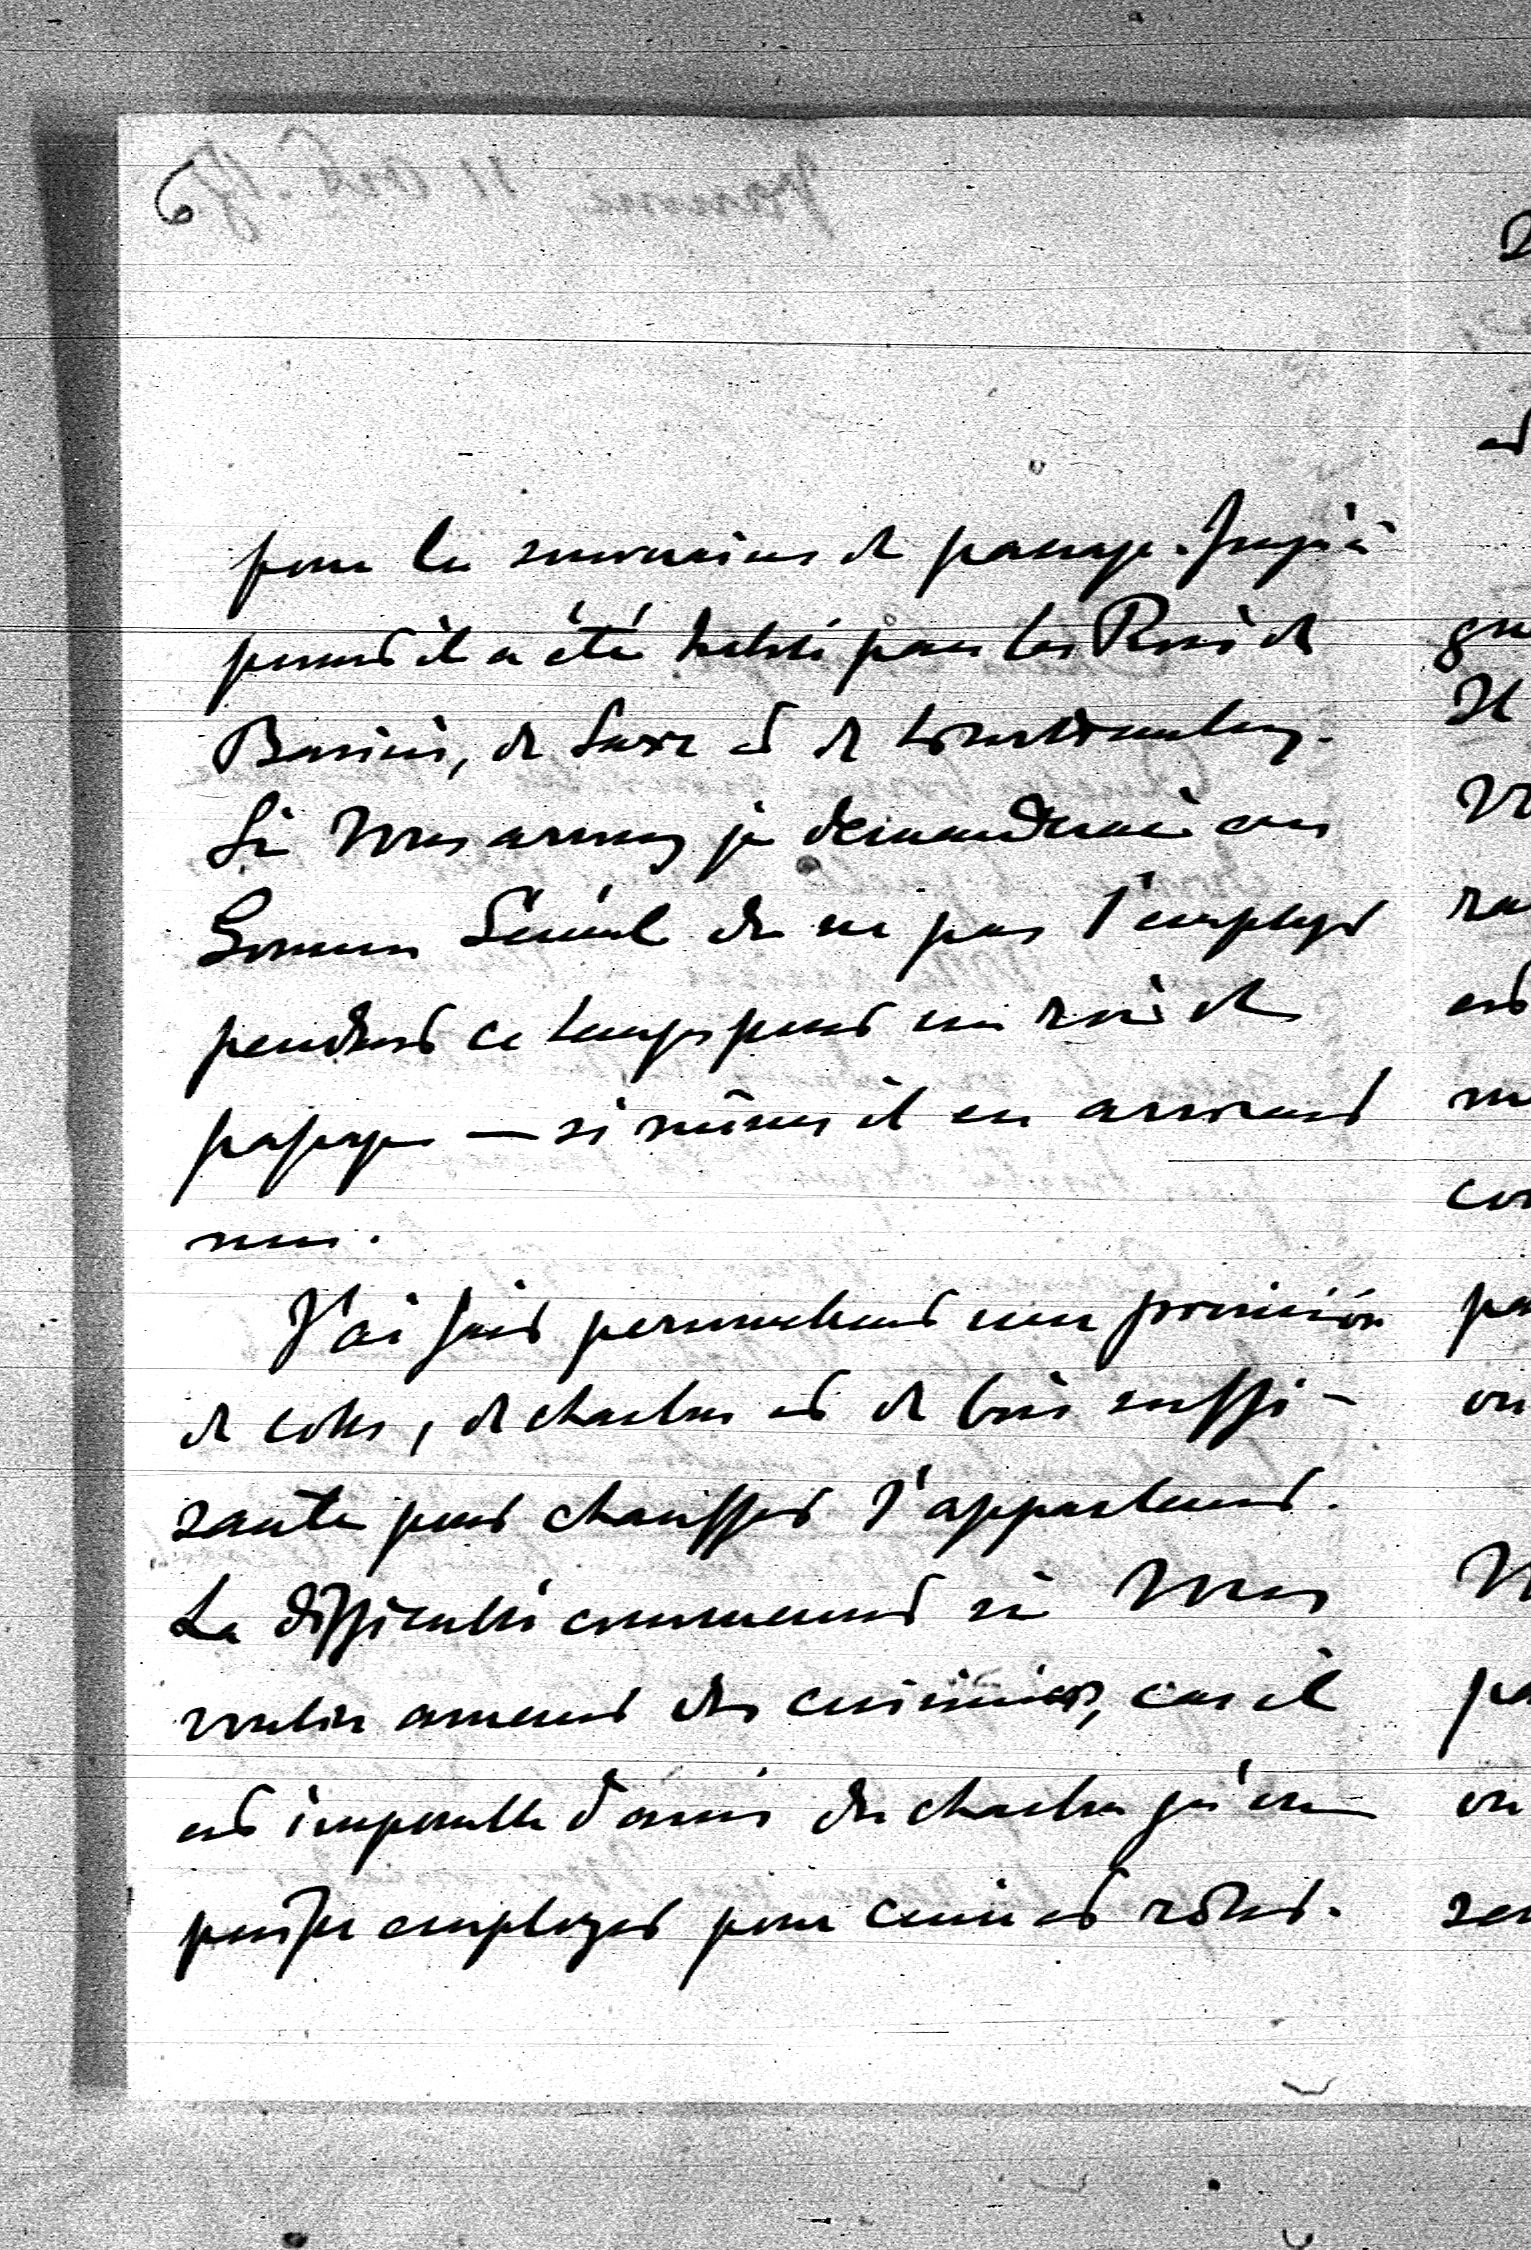 6
pour les souverains de passage. Jusqu'à
présent il a été habité par les Rois de
Bavière, de Saxe et de Wurtemberg.
Si Vous arrivez je demanderai au
Gouvern Général de ne pas l'employer
pendant ce temps pour un roi de
passage — si même il en arrivait
un.
J'ai fait personnellement une provision
de coke, de charbon et de bois suffi-
sante pour chauffer l'appartement.
La difficulté commencerait si Vous
vouliez amener des cuisiniers, car il
est impossible d'avoir du charbon qu'on
puisse employer pour cuire et rôtir.